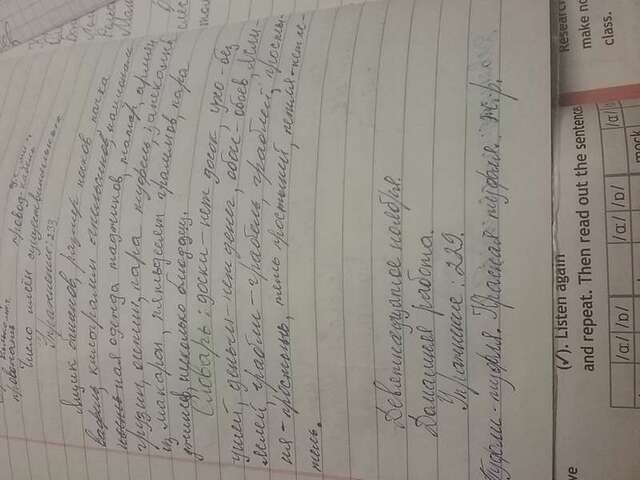 провопонт
провод-кабель
Число имён существительных
Упражнение: 233
Ящик бананов, размер носков, пачка
вафель, килограмм апельсинов, националь
ная одежда таджиков, татар, армян,
грузин, осетин, пара туфель, запеканка
из макарон, пятьдесят граммов, пара
джинсов, несколько блюддец.
Словарь: доски-нет досок, ухо-без
ушей, деньги-нет денег, обои-обоев, ясли-
яслей, грабли-грабель, граблей, просты-
ня-простынь, пять простыней, петля-нет пе-
тель.
Девятнадцатое ноября.
Домашняя работа.
Упражнение: 229.
Туфли-туфля. Красная туфля. ж.р.
(✓). Listen again
and repeat. Then read out the sentence
/ɑː/ /ɒ/ /ɑː/ /ɒ/ /ɑː/
mock
ve
Research
make no
class.